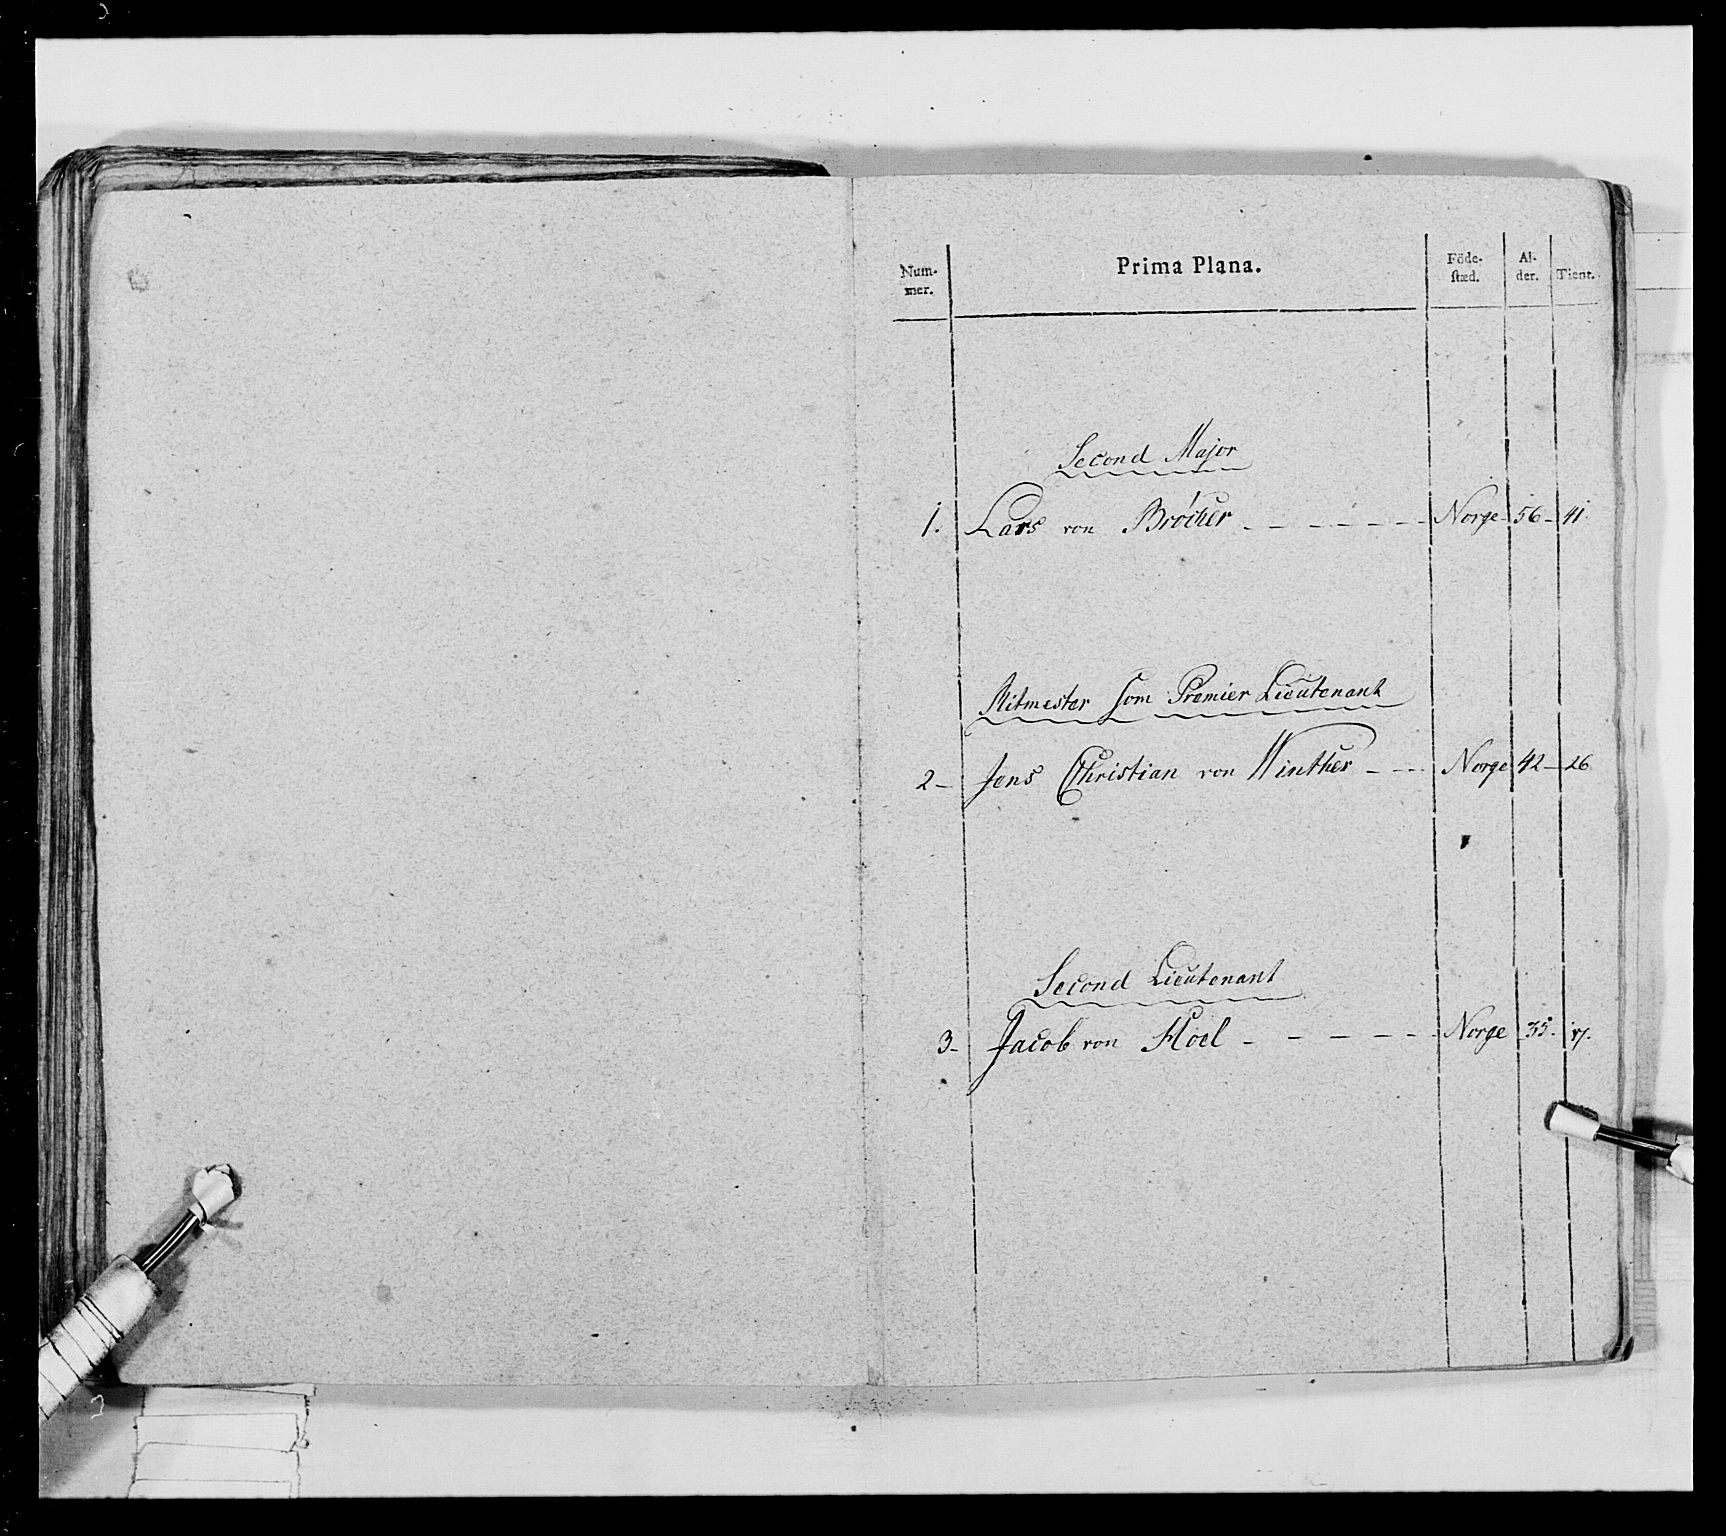 Num-
mer.
Prima Plana.
Föde-
ſtæd.
Al-
der.
Tient.
Second Major
1. Lars von Bröcker - - - - - - Norge - 56 - 41.
Ritmester som Premier Lieutenant
2 - Jens Christian von Winther - - - Norge 42 - 26
Second Lieutenant
3 - Jacob von Hoel - - - - - - Norge 35. 17.